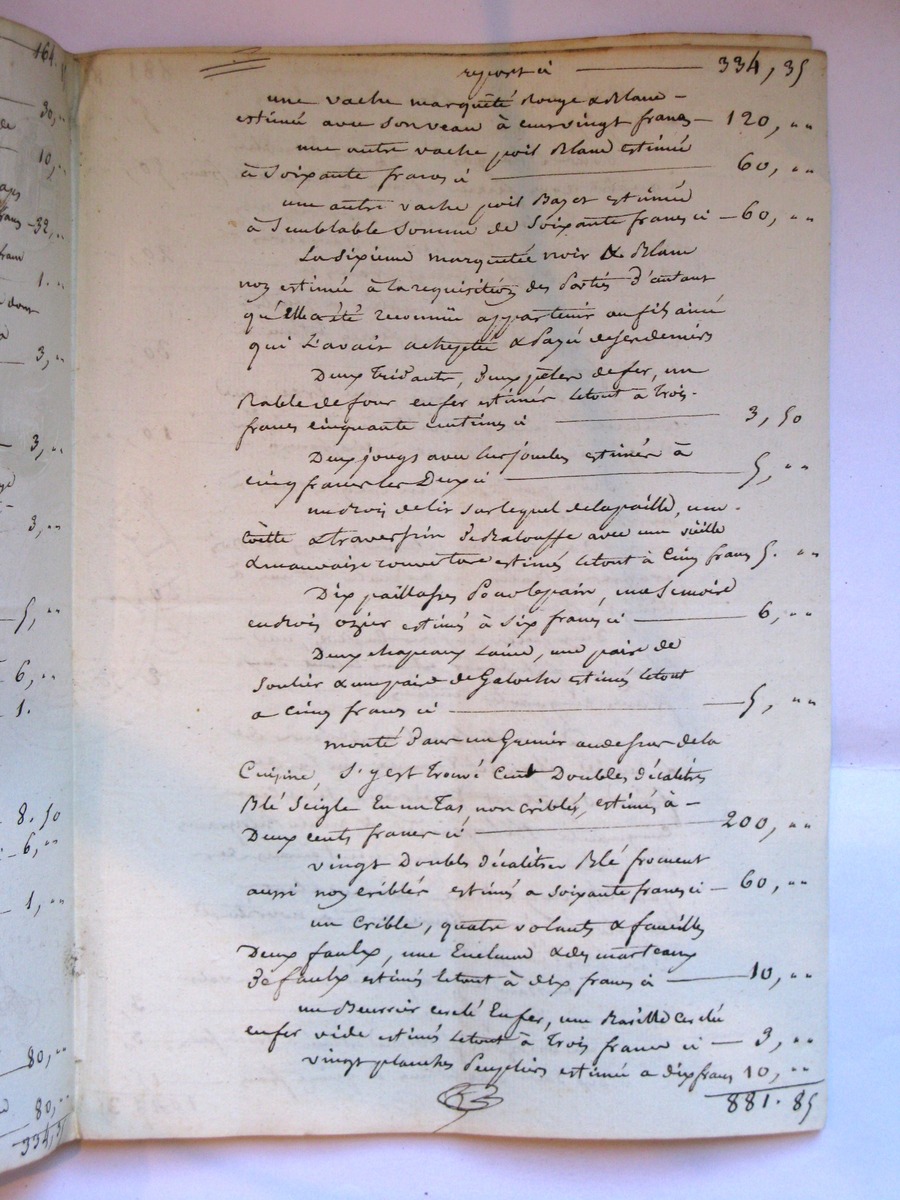 164.
30, „
10, „
32, „
1. „
3, „
3, „
3, „
5, „
6, „
1.
8.50
6, „
1, „
80, „
80, „
334,3
report ci ——— 334,35
une vache marquété Rouge & Blanc –
estimé avec son veau à cent vingt francs — 120, „
une autre vache poil Blanc estimée
à Soixante francs ci ——— 60, „
une autre vache poil Bazet estimée
à Semblable Somme de Soixante francs ci — 60, „
La Sixieme marquetée noir & Blanc
non estimée à la requisition des Partis d'autant
qu'Elle a été reconnüe appartenir au fils ainé
qui L'avait achepté & Payé de ses deniers
Deux tridants, Deux pèles de fer, un
Rable de four en fer estimés le tout à trois
francs cinquante centimes ci ——— 3, 50
Deux jougs avec les joucles estimés à
cinq francs les Deux ci ——— 5, „
un Bois de lit Sur lequel de la paille, une
Coëtte & traversin De Balouffe avec une
& mauvaise couverture estimés le tout à Cinq francs 5. „
Dix paillasses Pour le pain, une Semoire
en Bois ozier estimés à Six francs ci ——— 6, „
Deux chapeaux Laine, une paire de
Soulier & une paire de Galoche estimés le tout
a Cinq francs ci ——— 5, „
monté Dans un Grenier au dessus de la
Cuisine, S'y est trouvé Cent Doubles décalitres
Blé Seigle En un Tas non criblés, estimés à –
Deux cents francs ci ——— 200, „
vingt Doubles décalitres Blé froment
aussi non criblés estimés a Soixante francs ci — 60, „
un Crible, quatre volants & faucilles
Deux faulx, une Enclume & des marteaux
De faulx estimés le tout à dix francs ci ——— 10, „
un Beurrier cerclé En fer, une Barille cerclé
en fer vide estimés le tout à trois francs ci — 3, „
vingt planches Peupliers estimée a dix francs 10, „
881.85